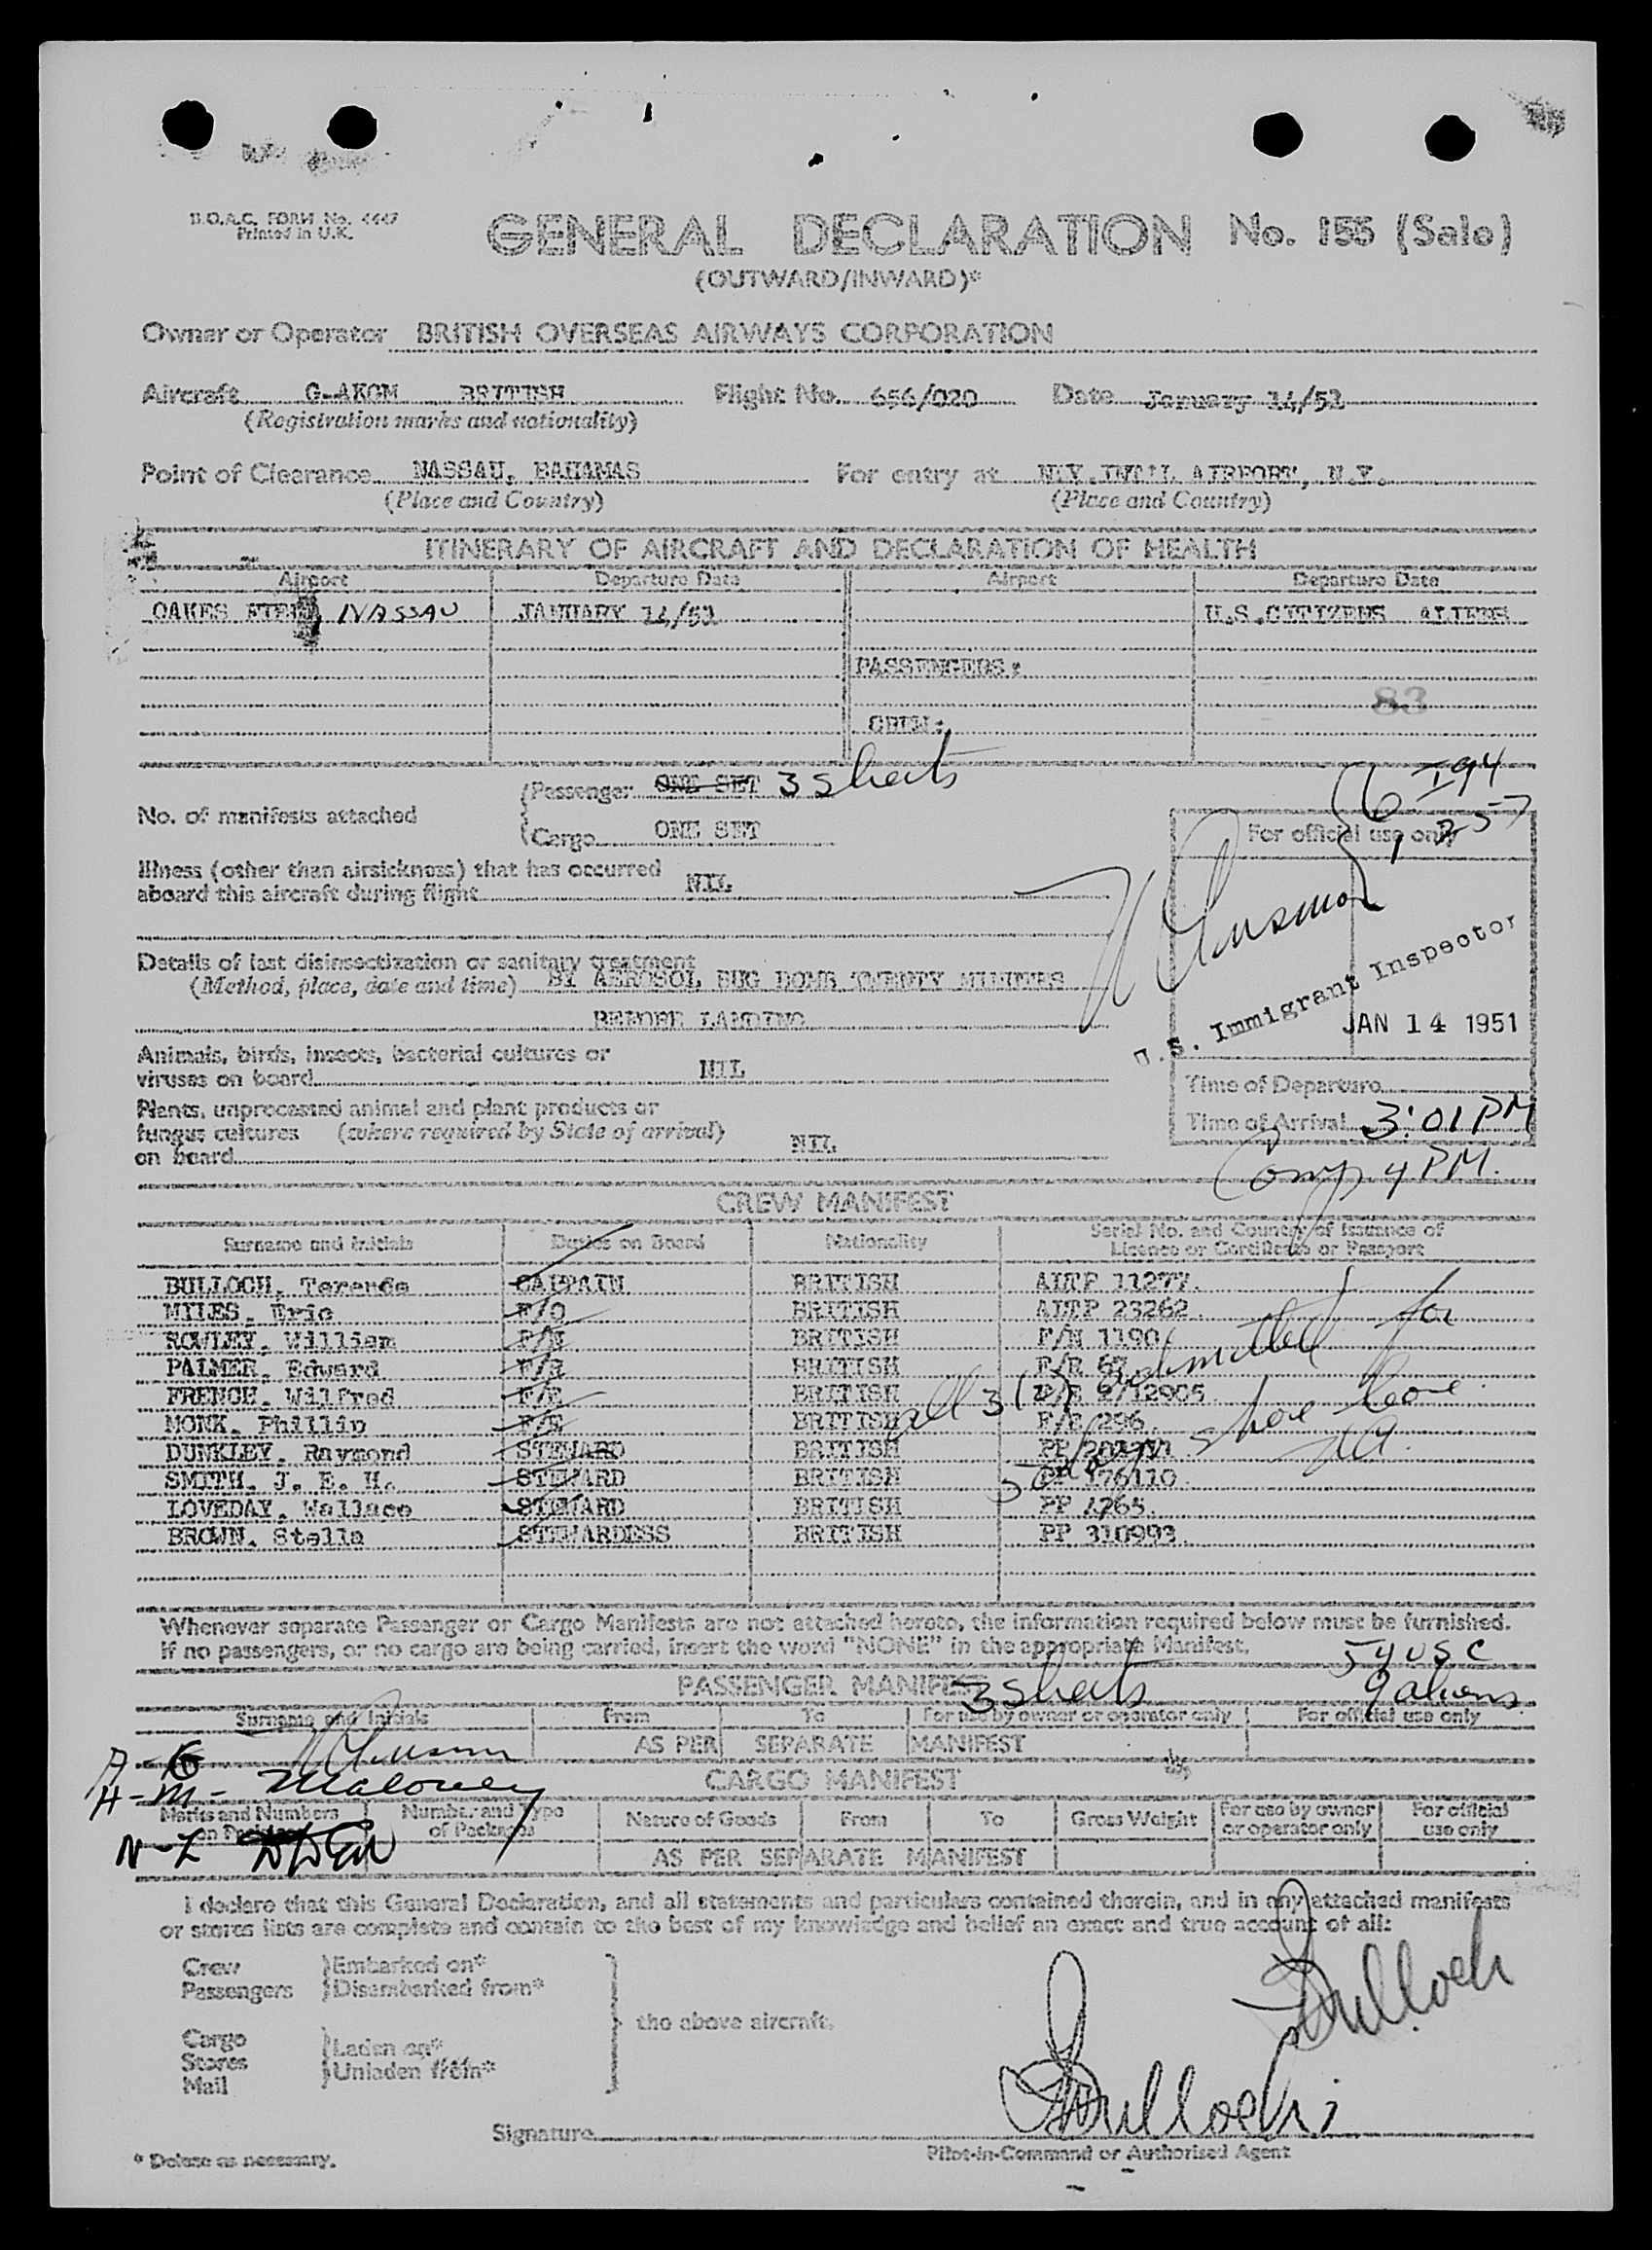 B.O.A.C. FORM No. 4447
Printed in U.K.
GENERAL DECLARATION No. 155 (Sale)
(OUTWARD/INWARD)*
Owner or Operator BRITISH OVERSEAS AIRWAYS CORPORATION
Aircraft G-AKGM BRITISH Flight No. 656/020 Date January 14/52
(Registration marks and nationality)
Point of Clearance NASSAU, BAHAMAS For entry at N.Y. INT'L AIRPORT, N.Y.
(Place and Country) (Place and Country)
ITINERARY OF AIRCRAFT AND DECLARATION OF HEALTH
Airport Departure Date Airport Departure Date
OAKES NASSAU JANUARY 14/52 U.S.CITIZENS ALIENS
PASSENGERS:
83
CREW:
No. of manifests attached
Passenger ONE SET 3 sheets
Cargo ONE SET
For official use only
Illness (other than airsickness) that has occurred
aboard this aircraft during flight NIL
Details of last disinsectization or sanitary treatment
(Method, place, date and time) BY AEROSOL BUG BOMB TWENTY MINUTES
BEFORE LANDING
U.S. Immigrant Inspector
JAN 14 1951
Animals, birds, insects, bacterial cultures or
viruses on board NIL
Time of Departure
Plants, unprocessed animal and plant products or
fungus cultures (where required by State of arrival)
on board NIL
Time of Arrival 3:01 PM
Comp 4 PM.
CREW MANIFEST
Surname and Initials Duties on Board Nationality Serial No. and Country of Issuance of
Licence or Certificate or Passport
BULLOCH, Terence CAPTAIN BRITISH ALTP 11277.
MILES, Eric F/O BRITISH ALTP 23262.
ROWLEY, William F/N BRITISH F/N 1190
PALMER, Edward F/R BRITISH F/R
FRENCH, Wilfred F/E BRITISH
MONK, Phillip F/E BRITISH F/E 296.
DUNKLEY, Raymond STEWARD BRITISH PP
SMITH, J. E. H. STEWARD BRITISH PP 176110.
LOVEDAY, Wallace STEWARD BRITISH PP
BROWN, Stella STEWARDESS BRITISH PP 310993.
all admitted for
shore leave
Whenever separate Passenger or Cargo Manifests are not attached hereto, the information required below must be furnished.
If no passengers, or no cargo are being carried, insert the word "NONE" in the appropriate Manifest.
54 USC
PASSENGER MANIFEST 3 sheets 9 aliens
Surname and Initials From To For use by owner or operator only For official use only
AS PER SEPARATE MANIFEST
A - G
H - M - Maloney
CARGO MANIFEST
Marks and Numbers on Packages Number and Type of Packages Nature of Goods From To Gross Weight For use by owner or operator only For official use only
N - Z
AS PER SEPARATE MANIFEST
I declare that this General Declaration, and all statements and particulars contained therein, and in any attached manifests
or stores lists are complete and contain to the best of my knowledge and belief an exact and true account of all:
Crew Embarked on*
Passengers Disembarked from*
the above aircraft.
Cargo Laden on*
Stores Unladen from*
Mail
Bulloch
Signature Bulloch
* Delete as necessary. Pilot-in-Command or Authorised Agent